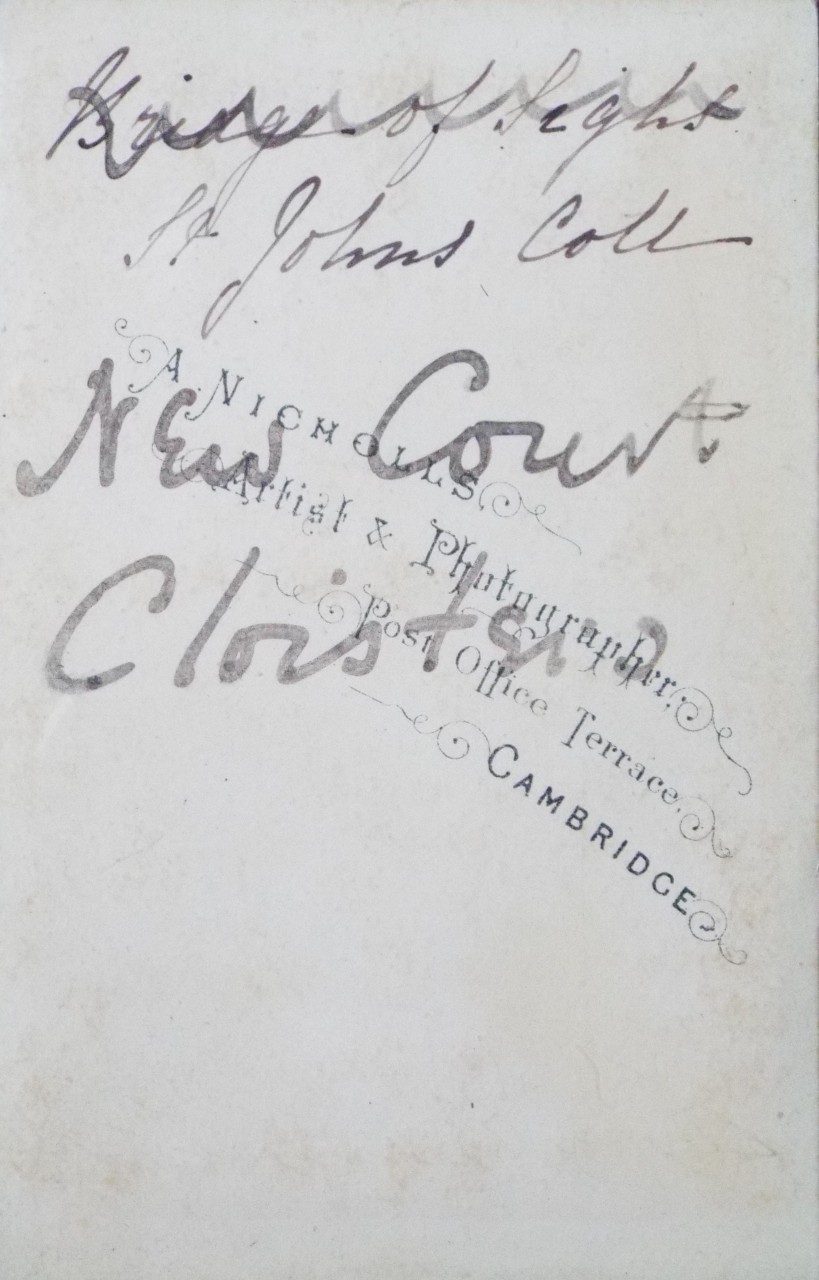 Bridge of Sighs
St Johns Coll
New Court
Cloisters
A. NICHOLLS.
Artist & Photographer,
Post Office Terrace.
CAMBRIDGE